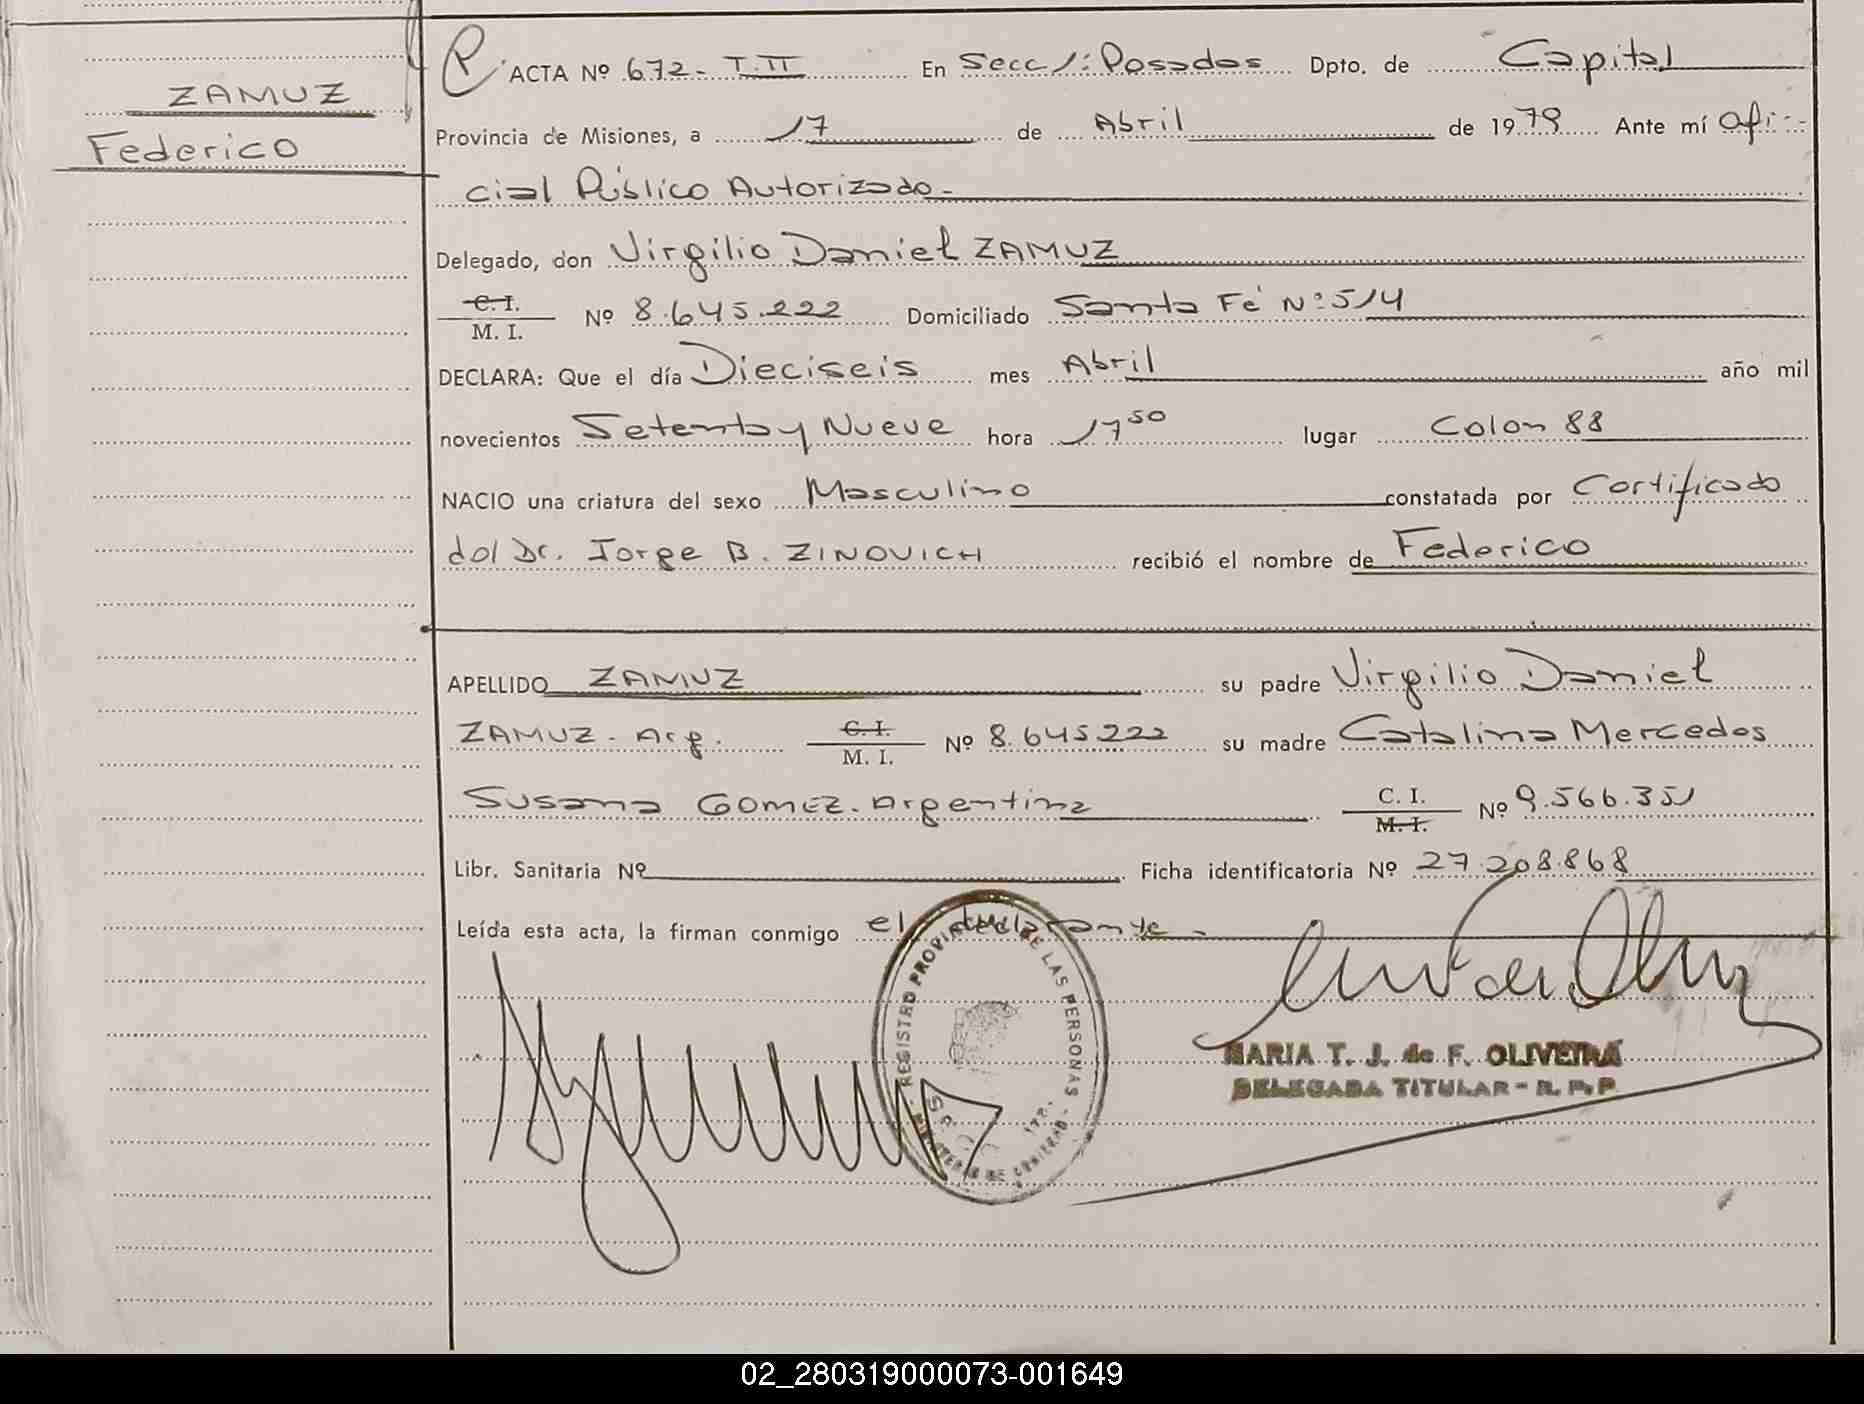 ZAMUZ
Federico
P ACTA Nº 672- T.II En Secc 1: Posadas Dpto. de Capital
Provincia de Misiones, a 17 de Abril de 1979 Ante mí Ofi-
cial Público Autorizado-
Delegado, don Virgilio Daniel ZAMUZ
C. I.
M. I. Nº 8.645.222 Domiciliado Santa Fé Nº 514
DECLARA: Que el día Dieciseis mes Abril año mil
novecientos Setenta y Nueve hora 17 50 lugar Colon 88
NACIO una criatura del sexo Masculino constatada por Certificado
del Dr. Jorge B. ZINOVICH recibió el nombre de Federico
APELLIDO ZAMUZ su padre Virgilio Daniel
ZAMUZ. Arg. C. I.
M. I. Nº 8.645222 su madre Catalina Mercedes
Susana GOMEZ. Argentina C. I.
M. I. Nº 9.566.351
Libr. Sanitaria Nº Ficha identificatoria Nº 27.208.868
Leída esta acta, la firman conmigo el declarante -
REGISTRO PROVINCIAL DE LAS PERSONAS
MINISTERIO DE GOBIERNO
MARIA T. J. de F. OLIVEIRA
DELEGADA TITULAR - R. P. P.
02_280319000073-001649